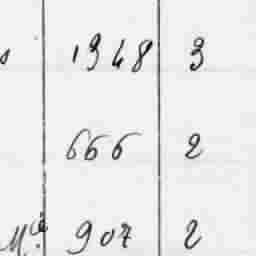 s 1948 3
666 2
M.cé 907 2